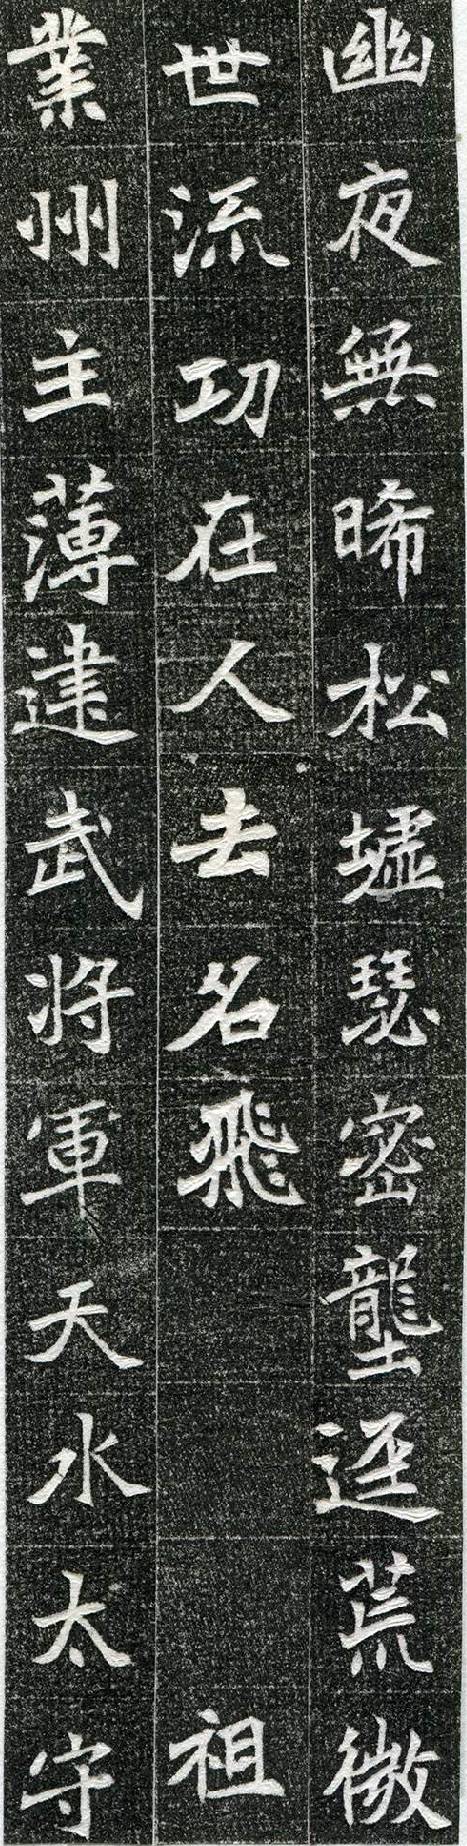 幽夜無晞松墟瑟密壟逕荒微
世流功在人去名飛祖
業州主薄建武将軍天水太守